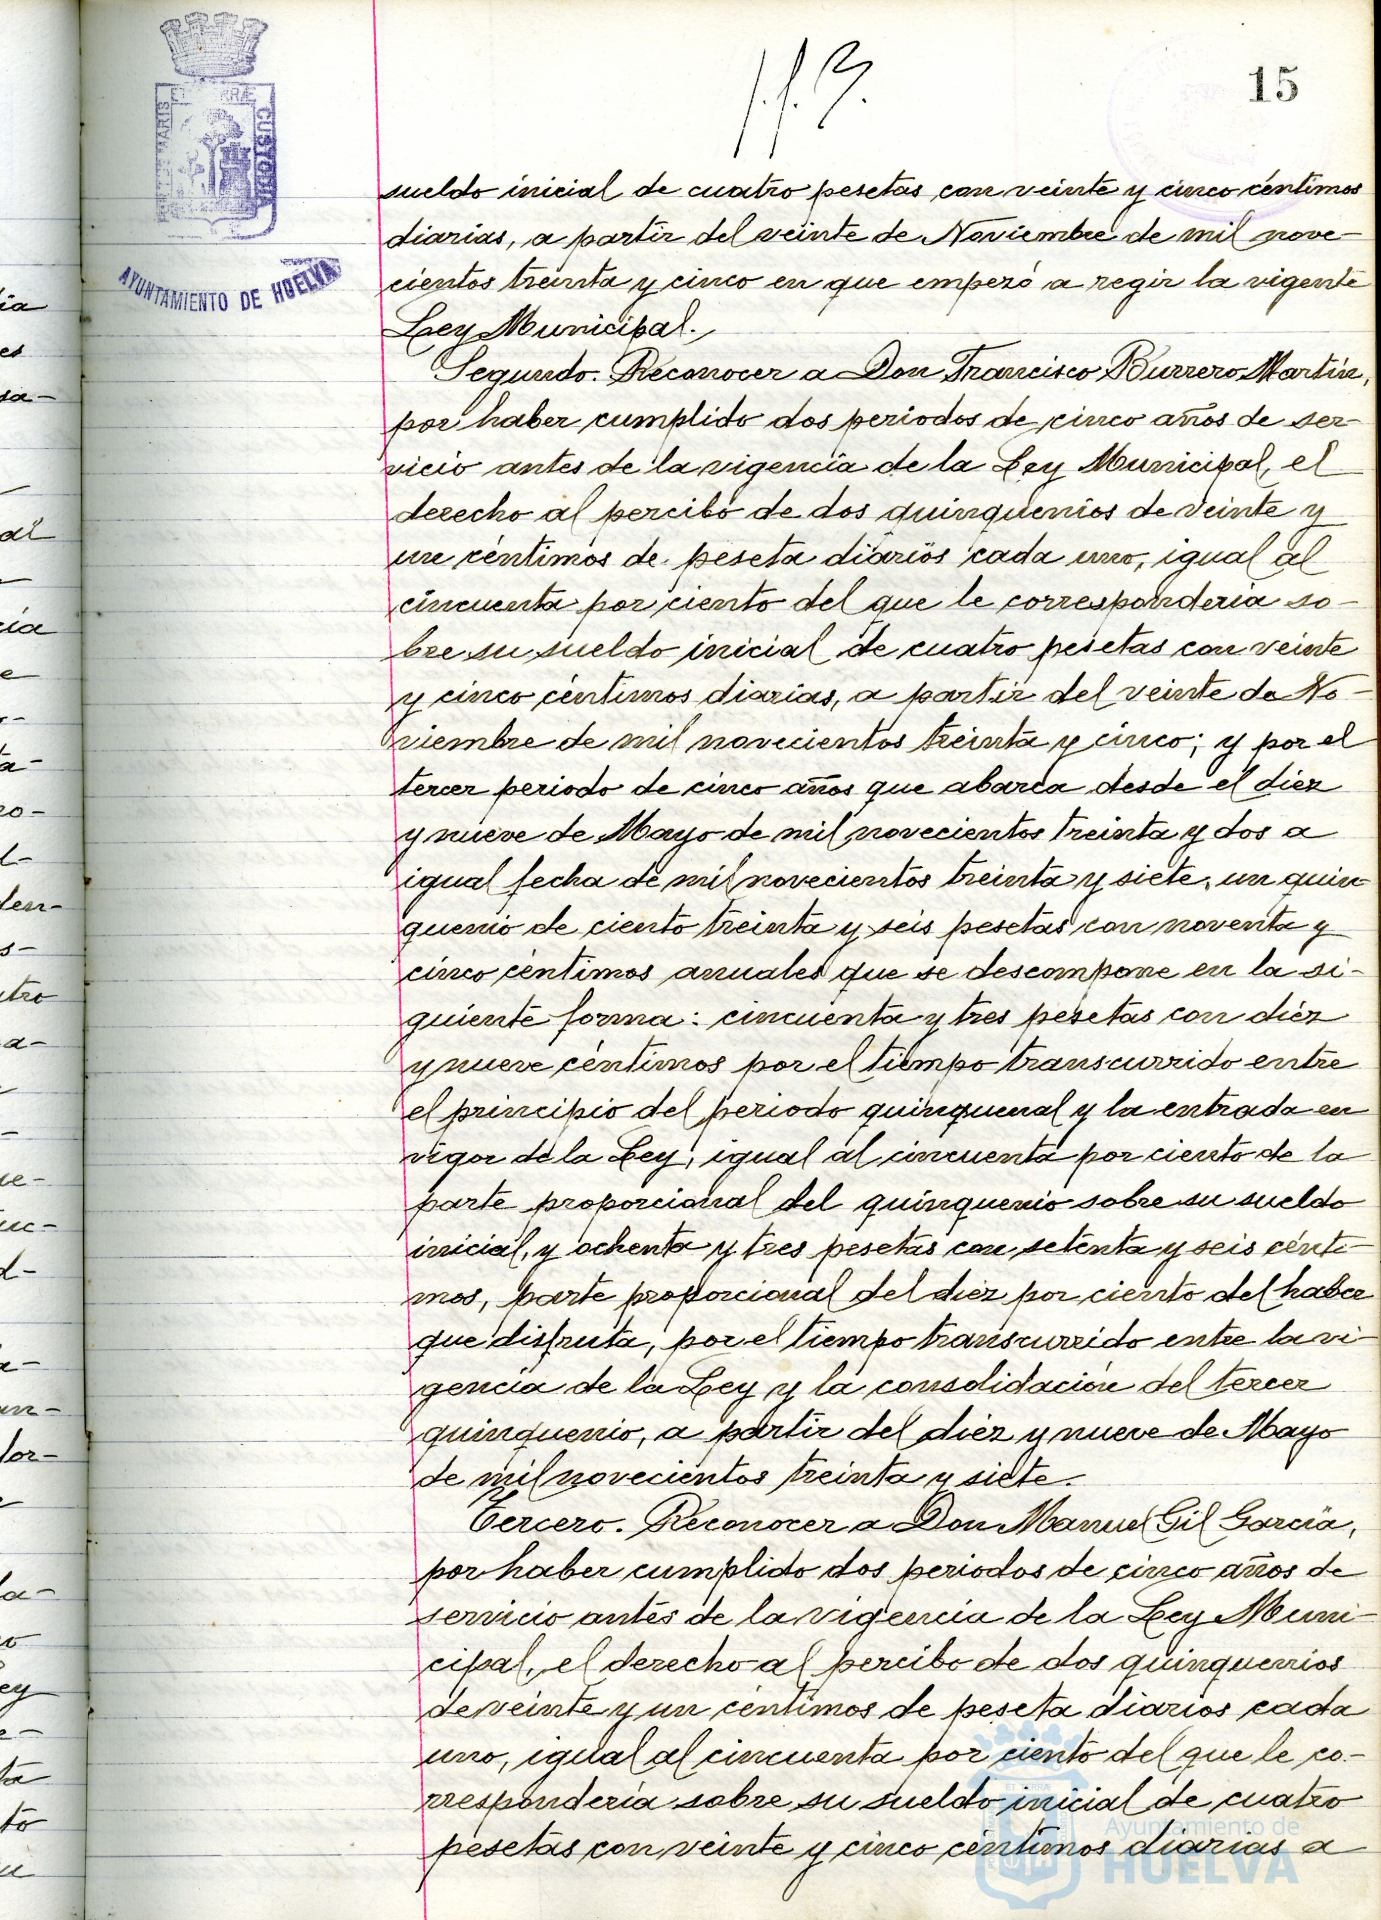 15
ET TERRÆ
CUSTODIA
MARIS
AYUNTAMIENTO DE HUELVA
sueldo inicial de cuatro pesetas con veinte y cinco céntimos
diarias, a partir del veinte de Noviembre de mil nove-
cientos treinta y cinco en que empezó a regir la vigente
Ley Municipal.
Segundo. Reconocer a Don Francisco Burrero Martín,
por haber cumplido dos periodos de cinco años de ser-
vicio antes de la vigencia de la Ley Municipal, el
derecho al percibo de dos quinquenios de veinte y
un céntimos de peseta diarios cada uno, igual al
cincuenta por ciento del que le correspondería so-
bre su sueldo inicial de cuatro pesetas con veinte
y cinco céntimos diarias, a partir del veinte de No-
viembre de mil novecientos treinta y cinco; y por el
tercer periodo de cinco años que abarca desde el diez
y nueve de Mayo de mil novecientos treinta y dos a
igual fecha de mil novecientos treinta y siete, un quin-
quenio de ciento treinta y seis pesetas con noventa y
cinco céntimos anuales que se descompone en la si-
guiente forma: cincuenta y tres pesetas con diez
y nueve céntimos por el tiempo transcurrido entre
el principio del periodo quinquenal y la entrada en
vigor de la Ley, igual al cincuenta por ciento de la
parte proporcional del quinquenio sobre su sueldo
inicial, y ochenta y tres pesetas con setenta y seis cénti-
mos, parte proporcional del diez por ciento del haber
que disfruta, por el tiempo transcurrido entre la vi-
gencia de la Ley y la consolidación del tercer
quinquenio, a partir del diez y nueve de Mayo
de mil novecientos treinta y siete.
Tercero. Reconocer a Don Manuel Gil García,
por haber cumplido dos periodos de cinco años de
servicio antes de la vigencia de la Ley Muni-
cipal, el derecho al percibo de dos quinquenios
de veinte y un céntimos de peseta diarios cada
uno, igual al cincuenta por ciento del que le co-
rrespondería sobre su sueldo inicial de cuatro
pesetas con veinte y cinco céntimos diarias a
Ayuntamiento de
HUELVA